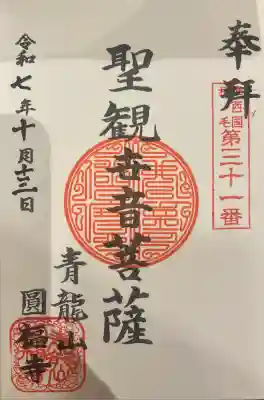 奉拝
西国
第三十一番
聖観世音菩薩
青龍山
圓福寺
令和七年十月十三日